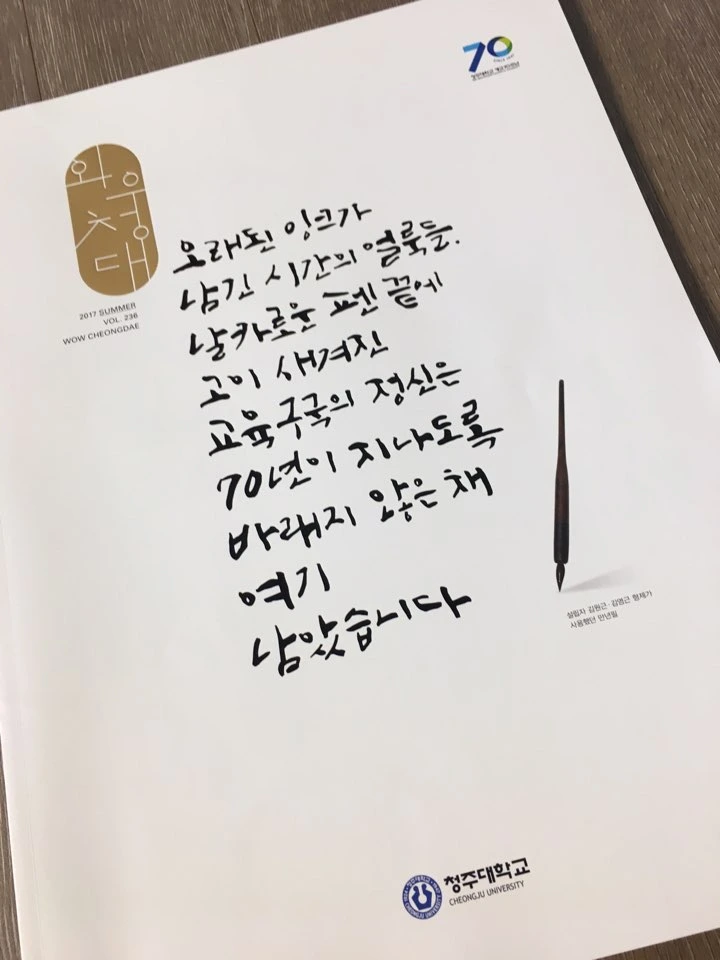 70
청주대학교 개교 70주년
와우
청대
2017 SUMMER
VOL. 236
WOW CHEONGDAE
오래된 잉크가
남긴 시간의 얼룩들.
날카로운 펜 끝에
고이 새겨진
교육구국의 정신은
70년이 지나도록
바래지 않은 채
여기
남았습니다
설립자 김원근·김영근 형제가
사용했던 만년필
청주대학교
CHEONGJU UNIVERSITY